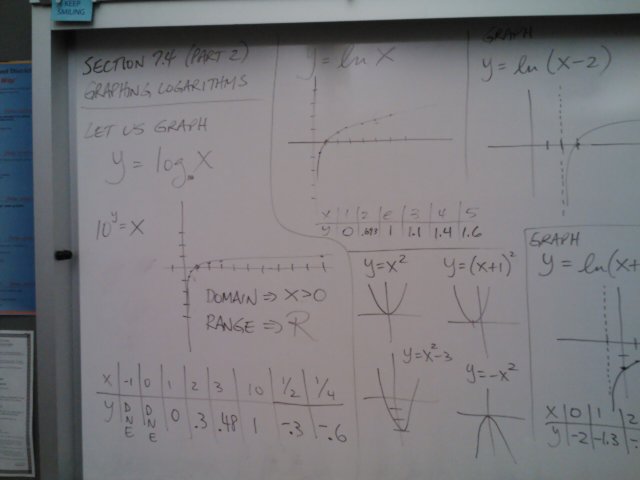 KEEP
SMILING
SECTION 7.4 (PART 2)
GRAPHING LOGARITHMS
LET US GRAPH
y = log₁₀ X
10^y = X
DOMAIN ⇒ X>0
RANGE ⇒ ℝ
X | -1 | 0 | 1 | 2 | 3 | 10 | 1/2 | 1/4
Y | DNE | DNE | 0 | .3 | .48 | 1 | -.3 | -.6
y = ln X
X | 1 | 2 | e | 3 | 4 | 5
Y | 0 | .693 | 1 | 1.1 | 1.4 | 1.6
y=x²
y=(x+1)²
y=x²-3
y=-x²
GRAPH
y = ln (x-2)
GRAPH
y = ln(x+
X | 0 | 1 | 2
Y | -2 | -1.3 | -.